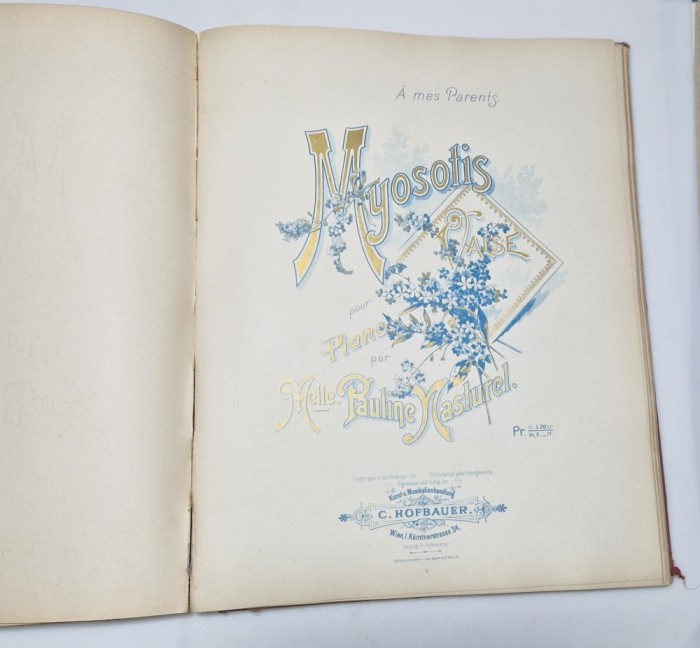 À mes Parents.
Myosotis
VALSE
pour
Piano
par
Melle. Pauline Nasturel.
Pr.
Eigenthum und Verlag der
Kunst u. Musikalienhandlung
C. HOFBAUER.
Wien, I. Kärntnerstrasse 34.